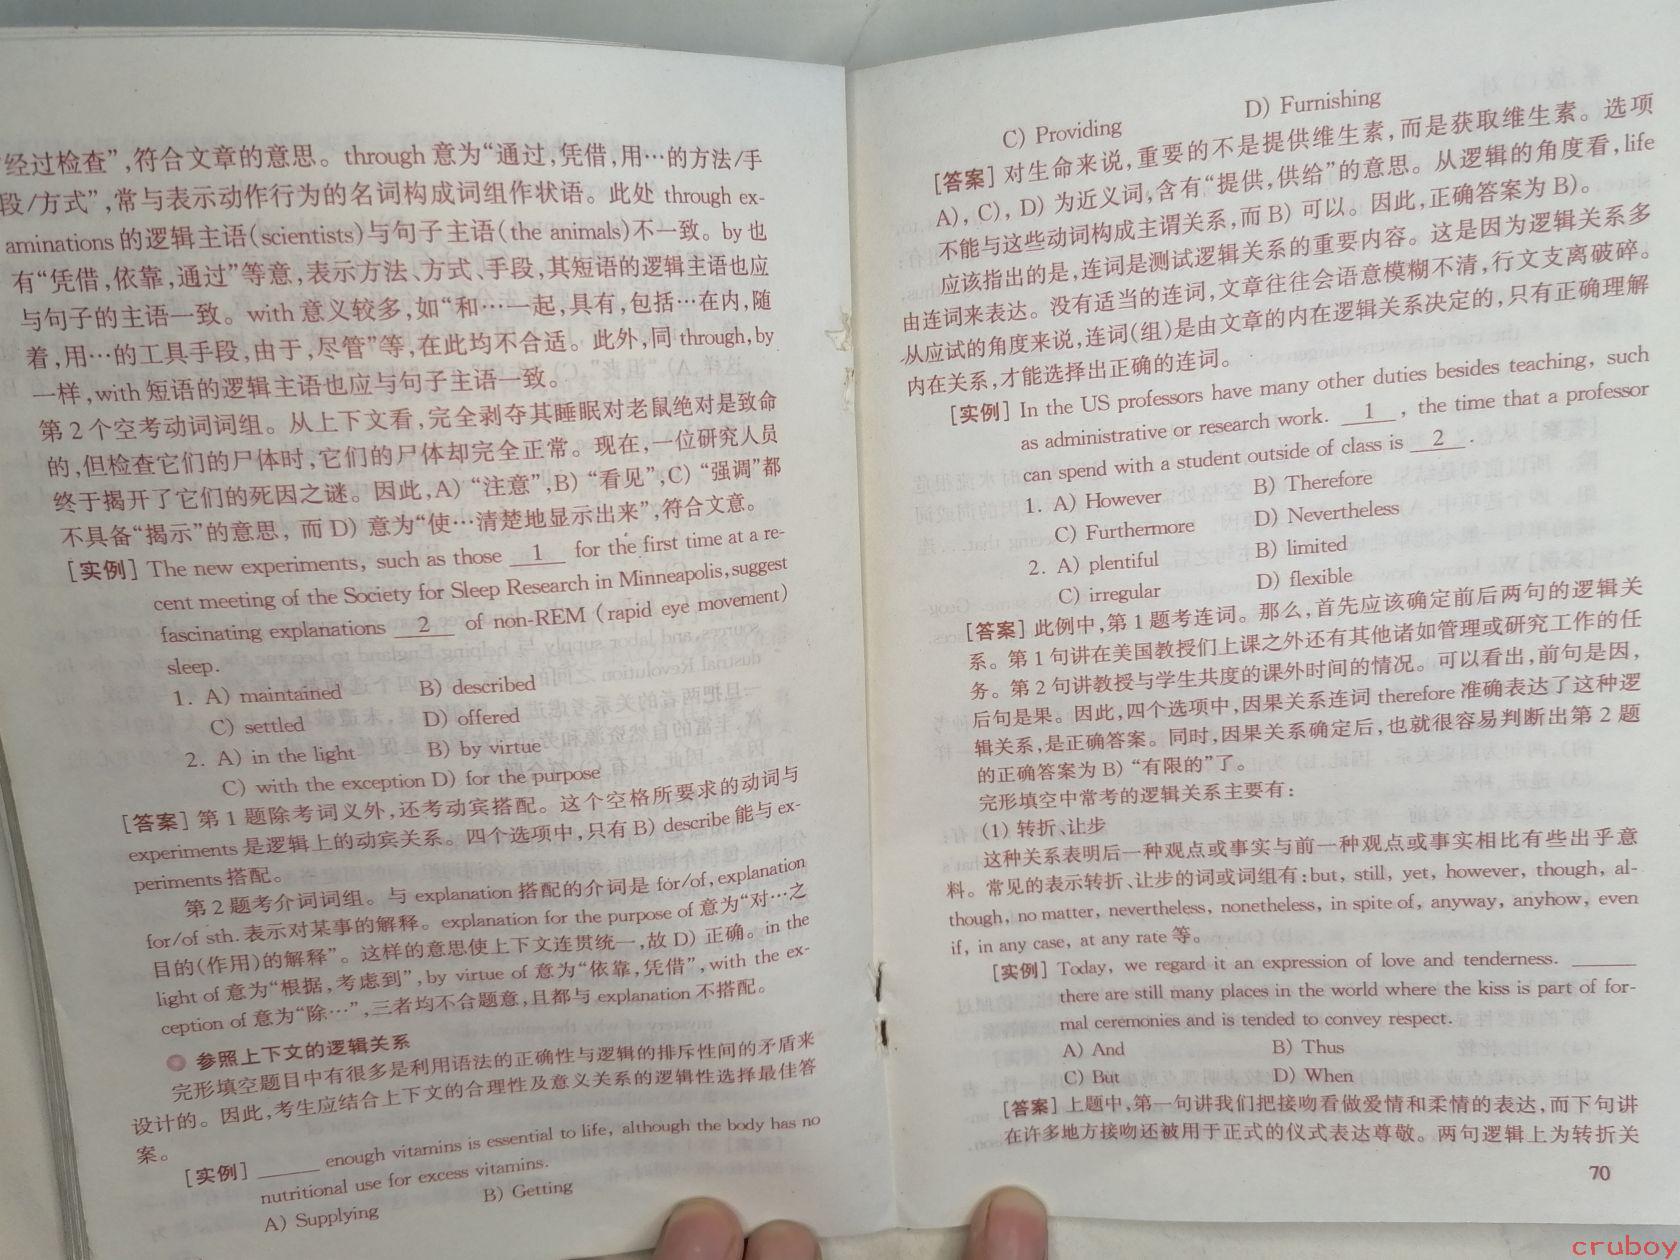 “经过检查”,符合文章的意思。through 意为“通过,凭借,用…的方法/手
段/方式”,常与表示动作行为的名词构成词组作状语。此处 through ex-
aminations 的逻辑主语(scientists)与句子主语(the animals)不一致。by也
有“凭借,依靠,通过”等意,表示方法、方式、手段,其短语的逻辑主语也应
与句子的主语一致。with 意义较多,如“和…一起,具有,包括…在内,随
着,用…的工具手段,由于,尽管”等,在此均不合适。此外,同 through,by
一样,with 短语的逻辑主语也应与句子主语一致。
第 2 个空考动词词组。从上下文看,完全剥夺其睡眠对老鼠绝对是致命
的,但检查它们的尸体时,它们的尸体却完全正常。现在,一位研究人员
终于揭开了它们的死因之谜。因此,A)“注意”,B)“看见”,C)“强调”都
不具备“揭示”的意思, 而 D) 意为“使…清楚地显示出来”,符合文意。
[实例] The new experiments, such as those __1__ for the first time at a re-
cent meeting of the Society for Sleep Research in Minneapolis, suggest
fascinating explanations __2__ of non-REM (rapid eye movement)
sleep.
1. A) maintained B) described
C) settled D) offered
2. A) in the light B) by virtue
C) with the exception D) for the purpose
[答案] 第 1 题除考词义外,还考动宾搭配。这个空格所要求的动词与
experiments 是逻辑上的动宾关系。四个选项中,只有 B) describe 能与 ex-
periments 搭配。
第 2 题考介词词组。与 explanation 搭配的介词是 for/of, explanation
for/of sth. 表示对某事的解释。explanation for the purpose of 意为“对…之
目的(作用)的解释”。这样的意思使上下文连贯统一,故 D) 正确。in the
light of 意为“根据,考虑到”, by virtue of 意为“依靠,凭借”, with the ex-
ception of 意为“除…”,三者均不合题意,且都与 explanation 不搭配。
参照上下文的逻辑关系
完形填空题目中有很多是利用语法的正确性与逻辑的排斥性间的矛盾来
设计的。因此,考生应结合上下文的合理性及意义关系的逻辑性选择最佳答
案。
[实例] ______ enough vitamins is essential to life, although the body has no
nutritional use for excess vitamins.
A) Supplying B) Getting
C) Providing D) Furnishing
[答案] 对生命来说,重要的不是提供维生素,而是获取维生素。选项
A), C), D) 为近义词,含有“提供,供给”的意思。从逻辑的角度看, life
不能与这些动词构成主谓关系,而 B) 可以。因此,正确答案为 B)。
应该指出的是,连词是测试逻辑关系的重要内容。这是因为逻辑关系多
由连词来表达。没有适当的连词,文章往往会语意模糊不清,行文支离破碎。
从应试的角度来说,连词(组)是由文章的内在逻辑关系决定的,只有正确理解
内在关系,才能选择出正确的连词。
[实例] In the US professors have many other duties besides teaching, such
as administrative or research work. __1__, the time that a professor
can spend with a student outside of class is __2__.
1. A) However B) Therefore
C) Furthermore D) Nevertheless
2. A) plentiful B) limited
C) irregular D) flexible
[答案] 此例中,第 1 题考连词。那么,首先应该确定前后两句的逻辑关
系。第 1 句讲在美国教授们上课之外还有其他诸如管理或研究工作的任
务。第 2 句讲教授与学生共度的课外时间的情况。可以看出,前句是因,
后句是果。因此,四个选项中,因果关系连词 therefore 准确表达了这种逻
辑关系,是正确答案。同时,因果关系确定后,也就很容易判断出第 2 题
的正确答案为 B)“有限的”了。
完形填空中常考的逻辑关系主要有:
(1) 转折、让步
这种关系表明后一种观点或事实与前一种观点或事实相比有些出乎意
料。常见的表示转折、让步的词或词组有:but, still, yet, however, though, al-
though, no matter, nevertheless, nonetheless, in spite of, anyway, anyhow, even
if, in any case, at any rate 等。
[实例] Today, we regard it an expression of love and tenderness. ______
there are still many places in the world where the kiss is part of for-
mal ceremonies and is tended to convey respect.
A) And B) Thus
C) But D) When
[答案] 上题中,第一句讲我们把接吻看做爱情和柔情的表达,而下句讲
在许多地方接吻还被用于正式的仪式表达尊敬。两句逻辑上为转折关
70
cruboy